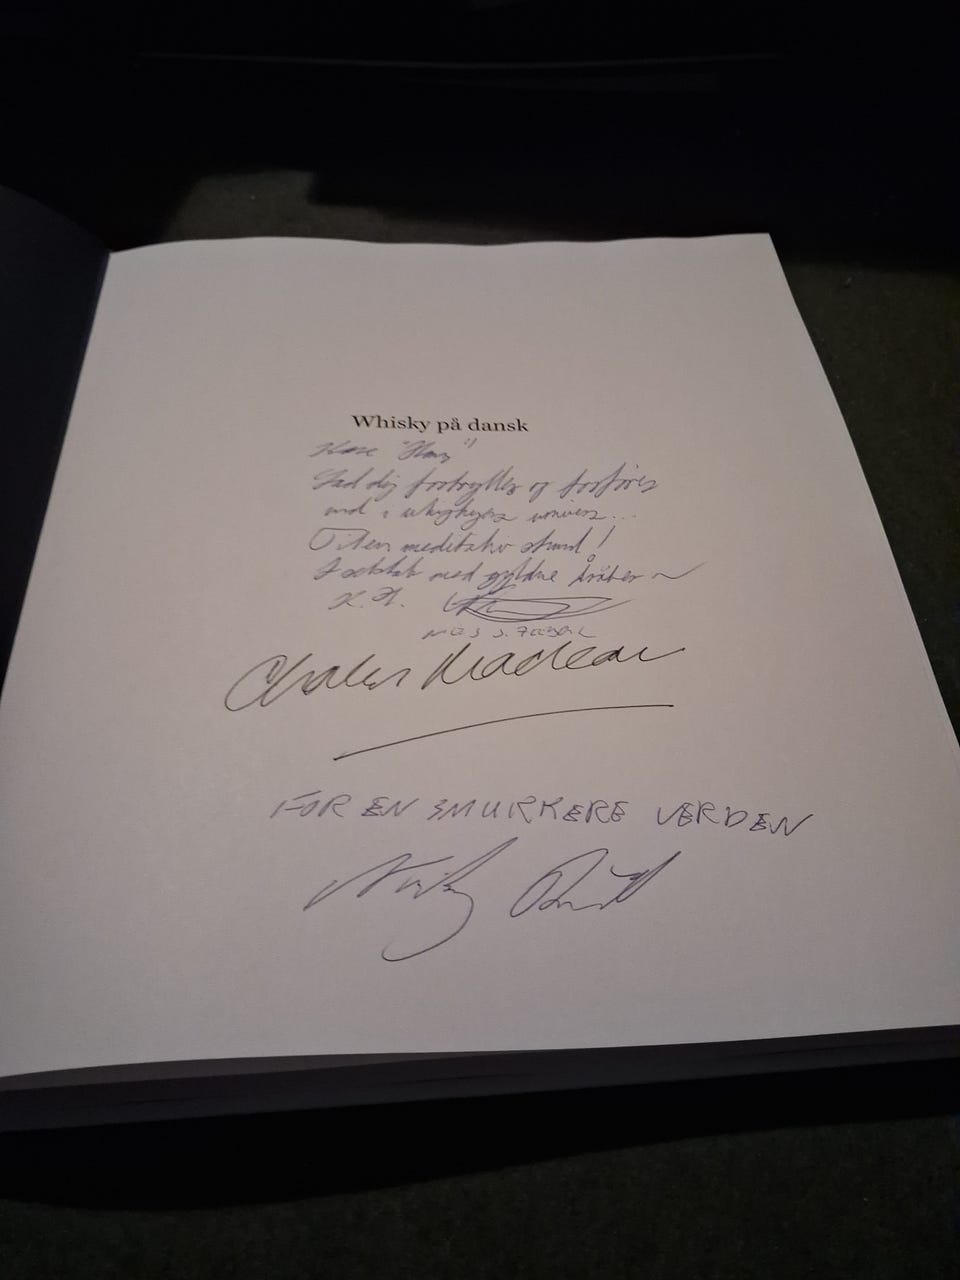 Whisky på dansk
Kære
Lad dig fortrylles og forføres
ind i whiskyens univers...
Til en meditativ stund!
I selskab med gyldne dråber
K.H.
Charles Maclean
FOR EN SMUKKERE VERDEN